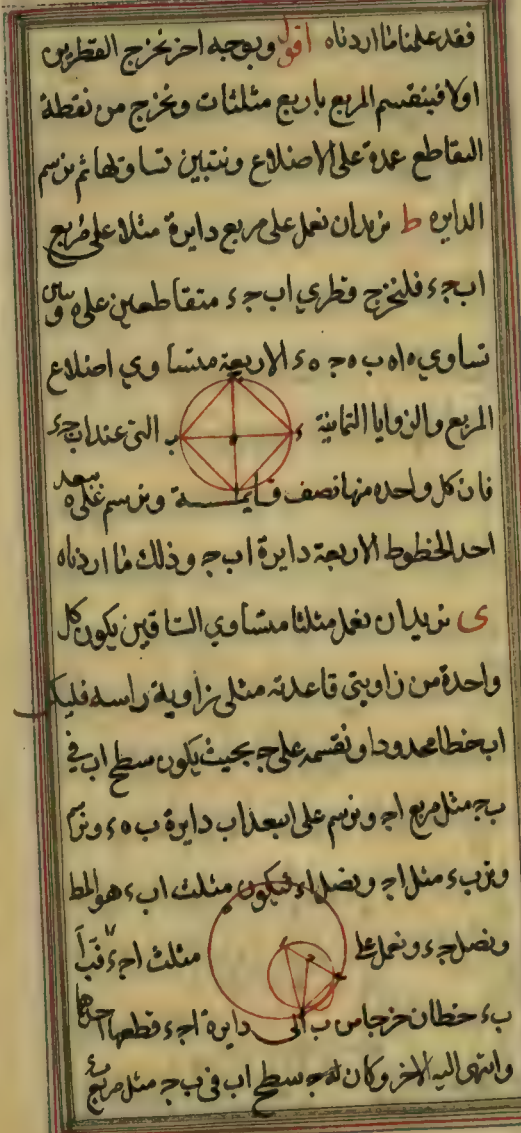 فقد علمنا ما اردناه اقول وبوجه اخر نخرج القطرين
اولا فينقسم المربع باربع مثلثات ونخرج من نقطة
التقاطع عمدة على الاضلاع ونتبين تساويها ثم نرسم
الدايرة ط نريد ان نعمل على مربع دايرة مثلا على مربع
اب جء فلنخرج قطري اب جء متقاطعين على ه و
تساوي ه ا ه ب ه ج ه ء الاربعة متساوي اضلاع
المربع والزوايا الثمانية التي عند اب جء
فان كل واحده منها نصف قايمة ونرسم على ه ببعد
احد الخطوط الاربعة دايرة اب ج وذلك ما اردناه
ى نريد ان نعمل مثلثا متساوي الساقين يكون كل
واحدة من زاويتي قاعدته مثلي زاوية راسه فليكن
اب خطا محدودا ونقسمه على ج بحيث يكون سطح اب في
ب ج مثل مربع اج ونرسم على ا ببعد اب دايرة ب ه ء
وتر بء مثل اج ونصل اء فيكون مثلث اب ء هو المط
ونصل جء ونعمل على مثلث اجء
بء خطان خرجا من ب الى دايرة اجء قطعها احدهما
وانتهى اليه الاخر وكان سطح اب في ب ج مثل مربع بء